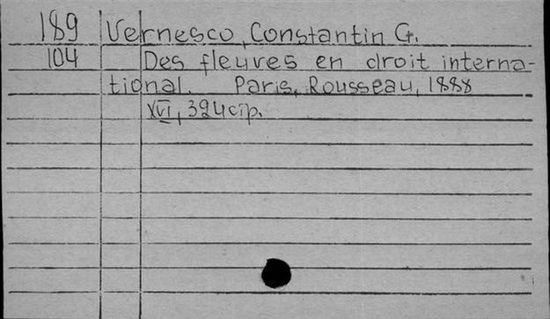 189 Vernesco, Constantin G.
104 Des fleuves en droit interna-
tional. Paris, Rousseau, 1888
XVI, 324 p.